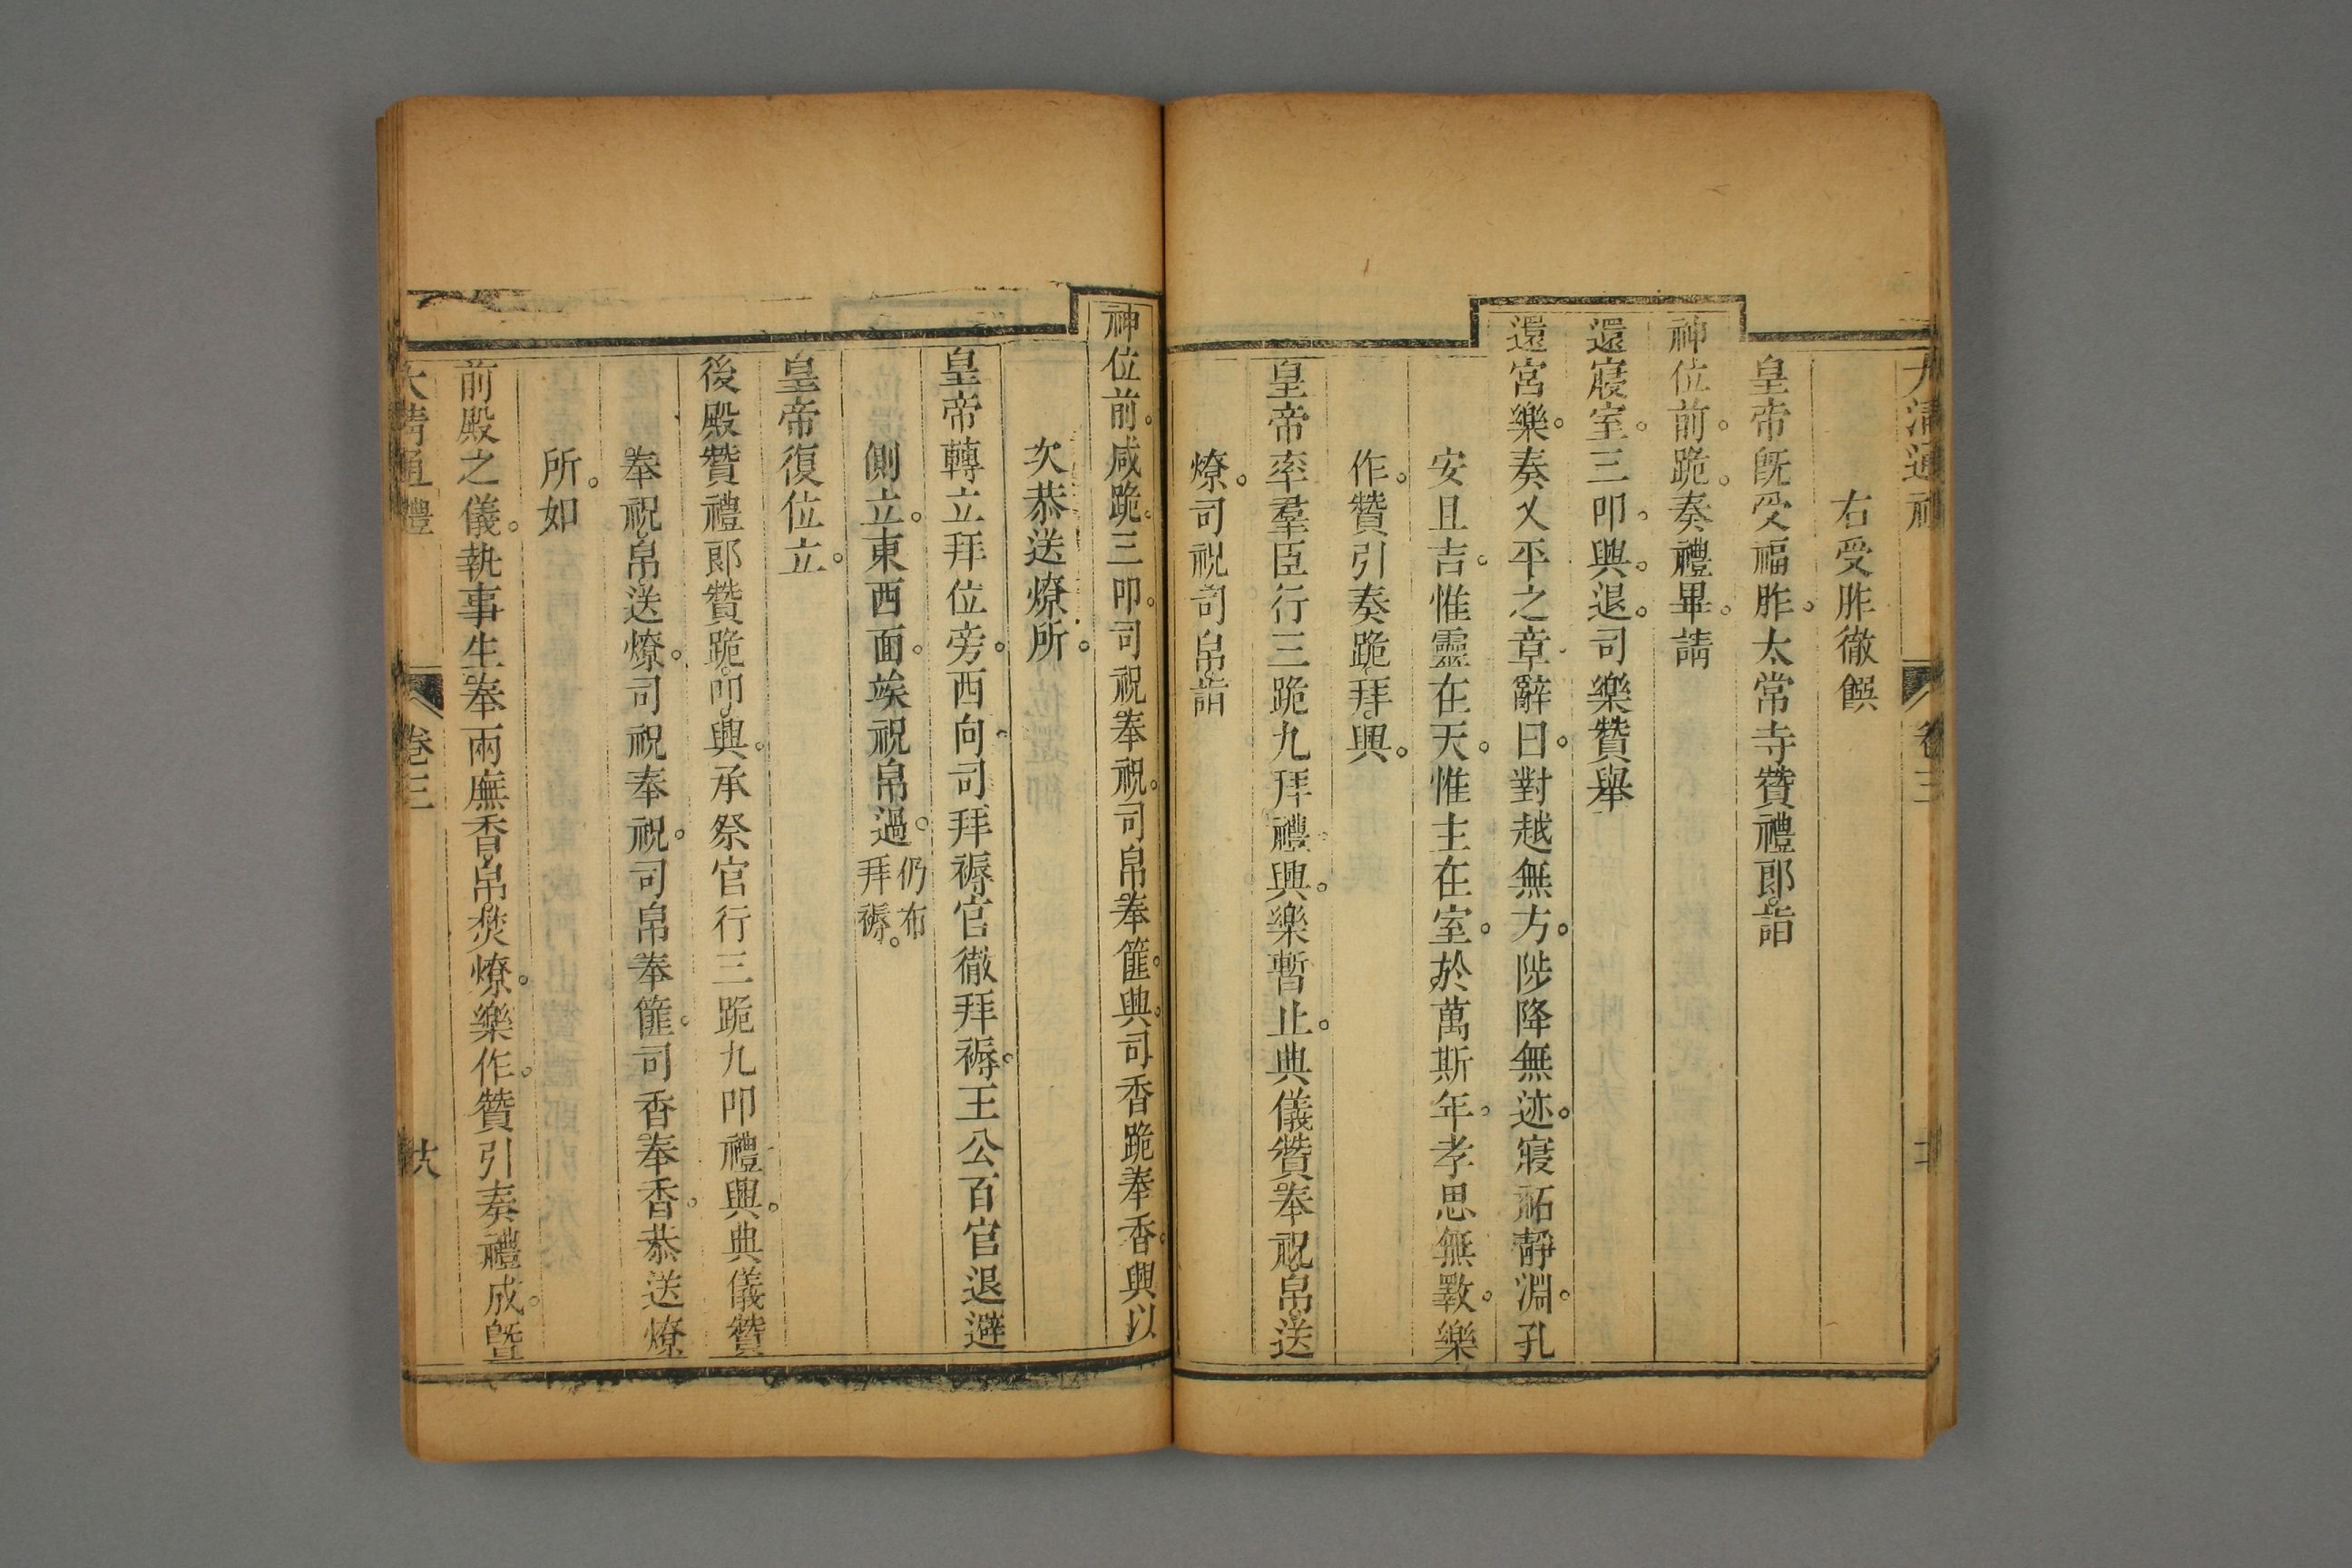 大清通禮 卷三
右受胙徹饌
皇帝旣受福胙。太常寺贊禮郎詣
神位前。跪。奏禮畢。請
還寢室。三叩。興。退。司樂贊舉
還宮樂。奏乂平之章。辭曰。對越無方。陟降無迹。寢祏靜淵。孔
安且吉。惟靈在天。惟主在室。於萬斯年。孝思無斁。樂
作。贊引奏跪拜興。
皇帝率羣臣行三跪九拜禮。興。樂暫止。典儀贊奉祝帛送
燎。司祝司帛詣
神位前。咸跪。三叩。司祝奉祝。司帛奉篚。興。司香跪奉香。興。以
次恭送燎所。
皇帝轉立拜位旁。西向。司拜褥官徹拜褥。王公百官退避
側立。東西面。竢祝帛過。仍布
拜褥。
皇帝復位立。
後殿贊禮郎贊跪叩興。承祭官行三跪九叩禮。興。典儀贊
奉祝帛送燎。司祝奉祝。司帛奉篚。司香奉香。恭送燎
所。如
前殿之儀。執事生奉兩廡香帛焚燎。樂作。贊引奏禮成。曁
大清通禮 卷三 十六